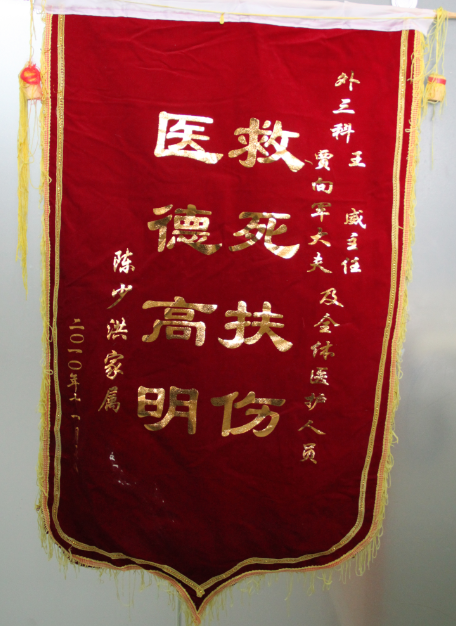 外三科王威主任
贾向军大夫及全体医护人员
救死扶伤
医德高明
陈少洪家属
二〇一〇年